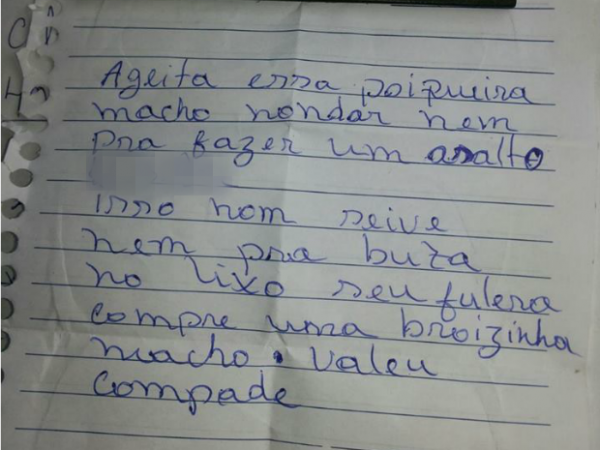 Ageita essa poipueira
macho nondar nem
pra fazer um asalto
isso nom seive
nem pra buta
no lixo seu fulera
compre uma broizinha
macho. Valeu
Compade